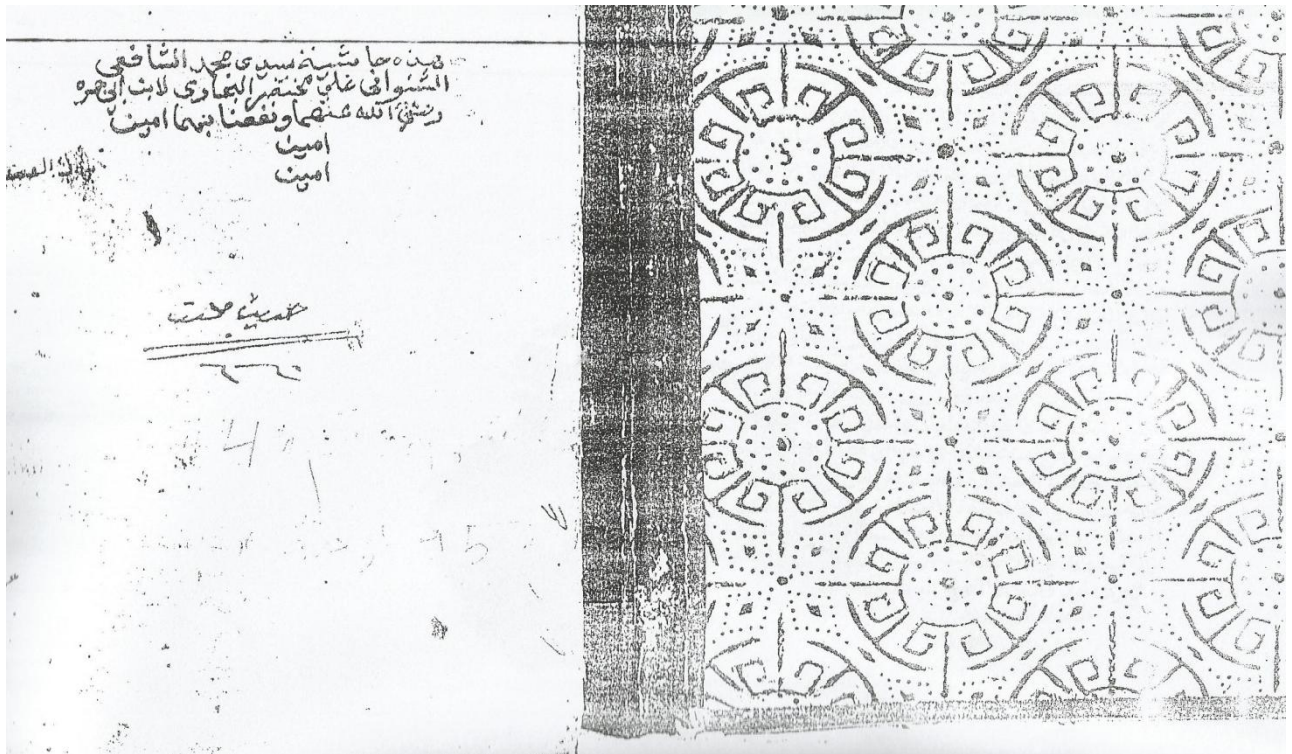 هذه حاشية سيدى محمد الشافعي
الشنواني علي مختصر البخارى لابن ابي جمره
رضي الله عنهما ونفعنا بهما امين
امين
امين
حديث
4
45